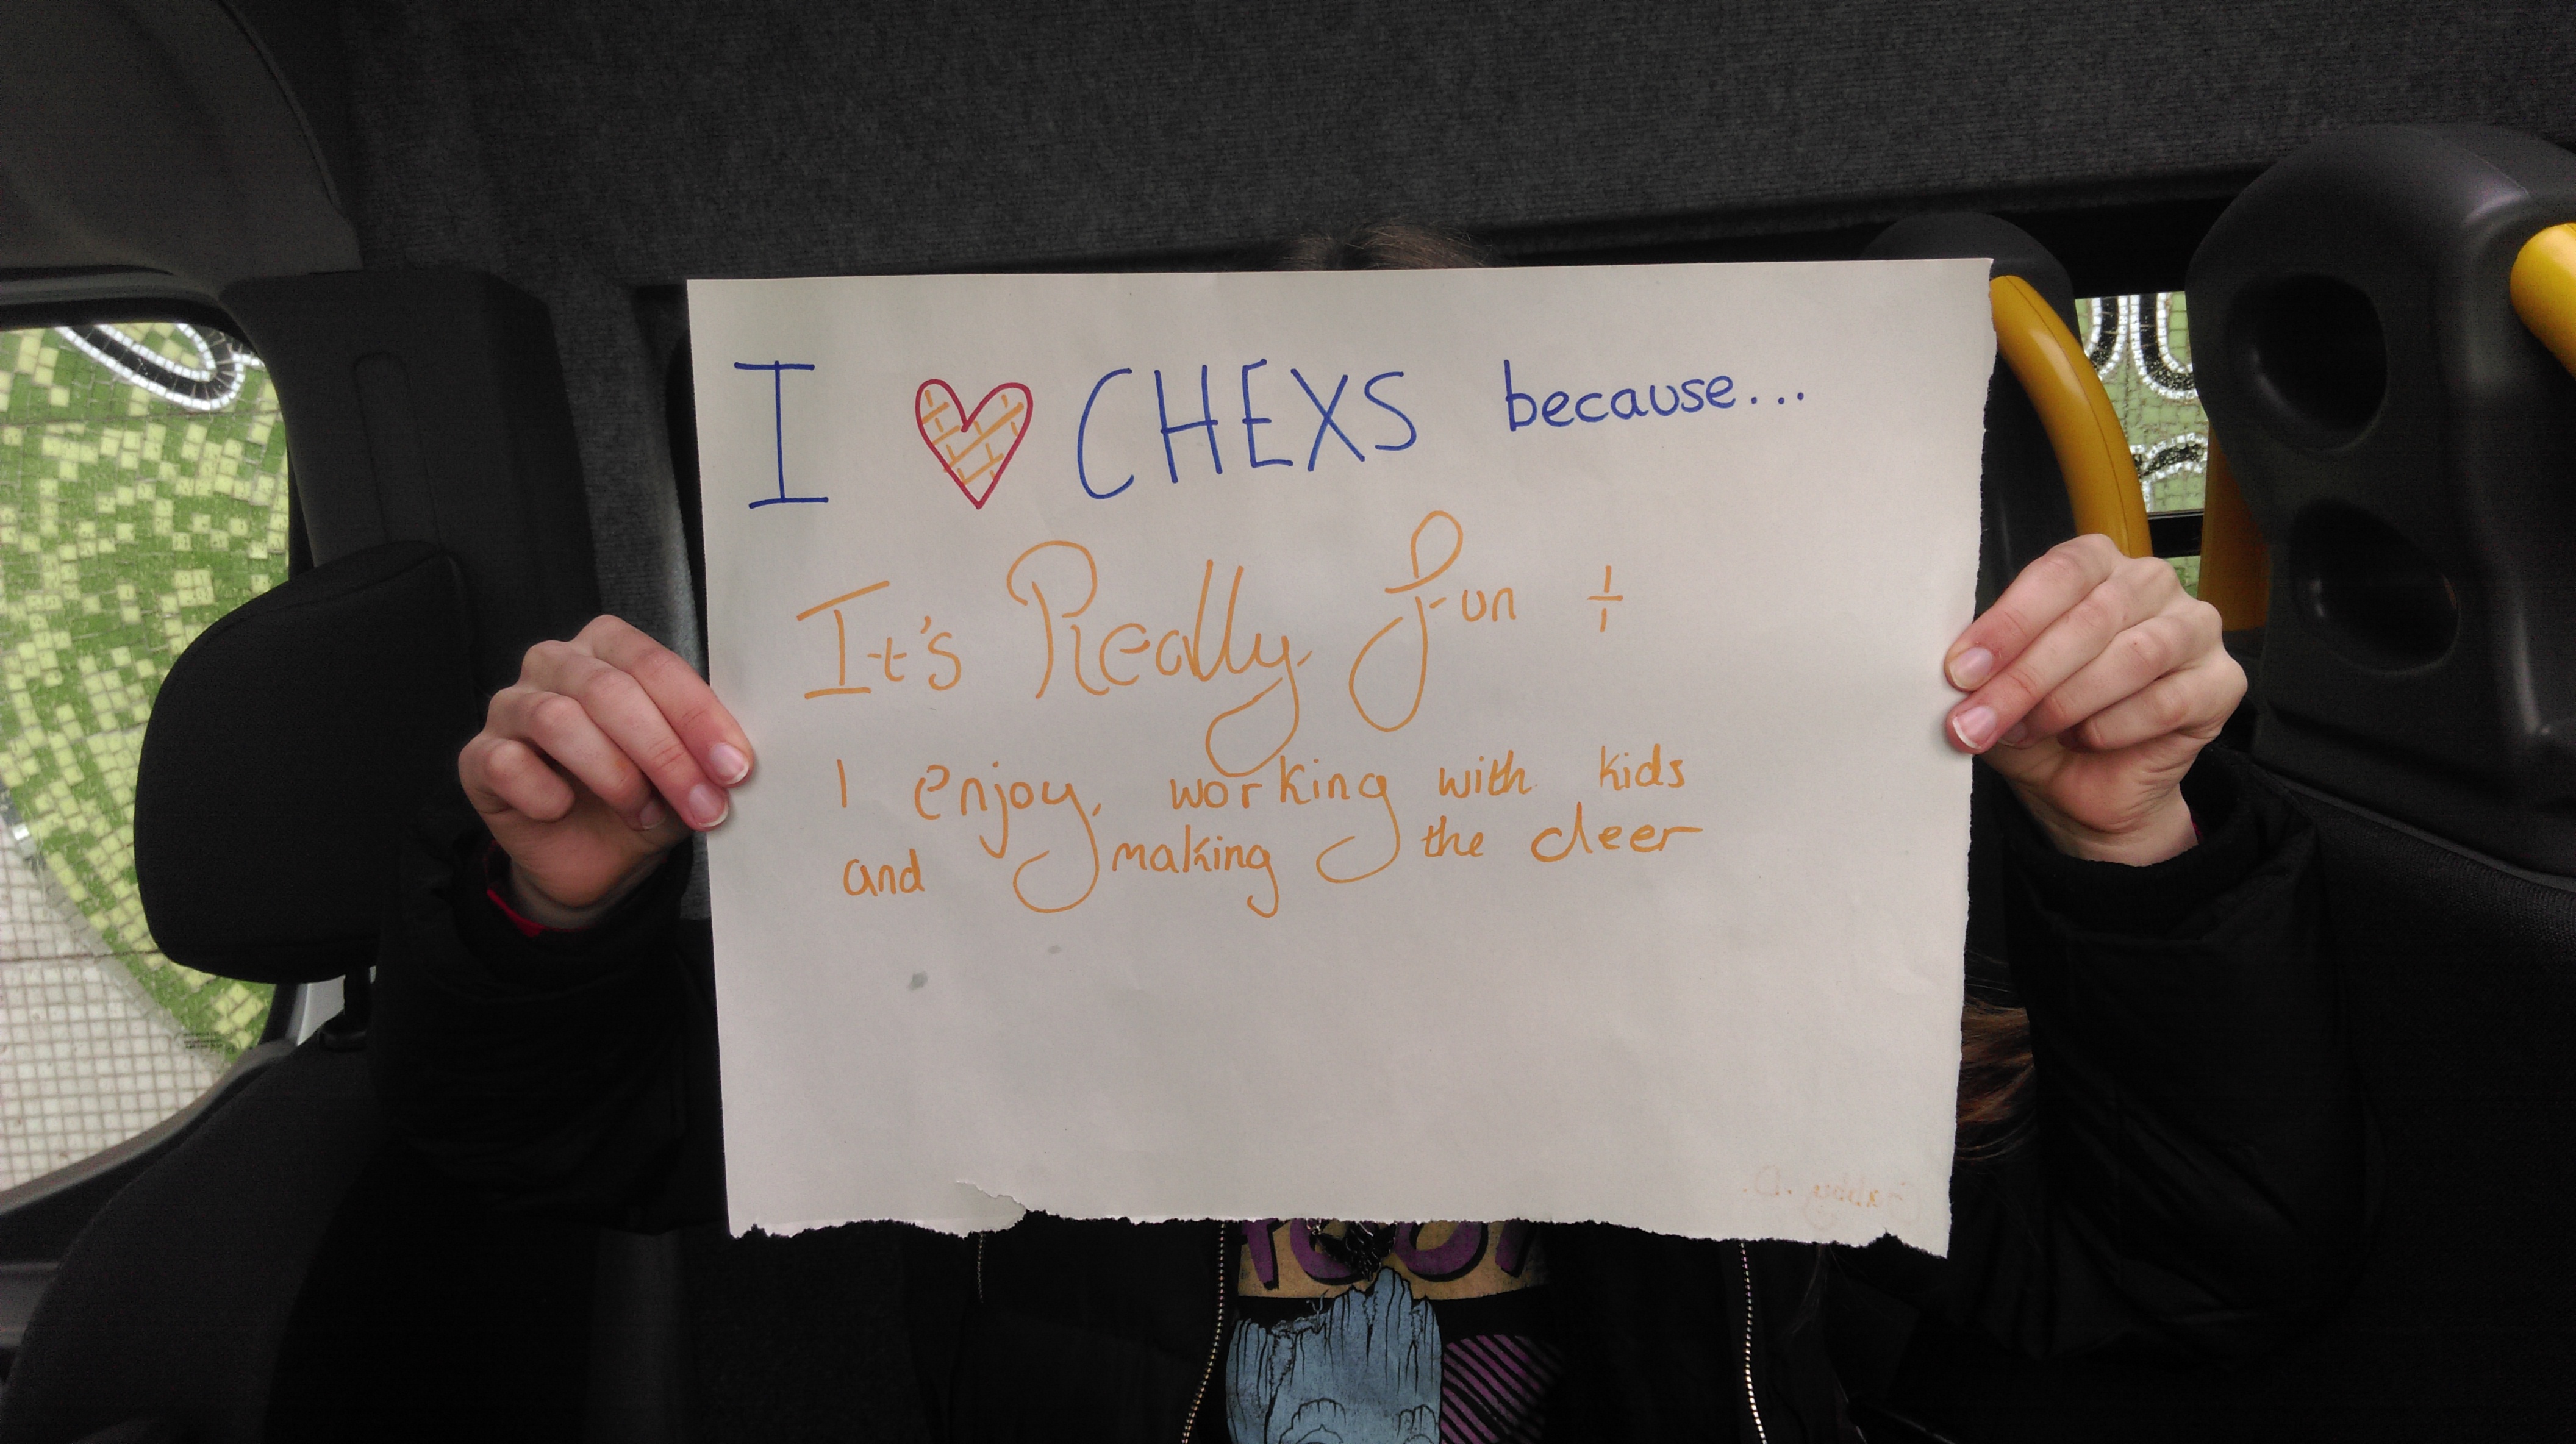 I ♥ CHEXS because...
It's Really fun +
I enjoy, working with kids
and making the deer